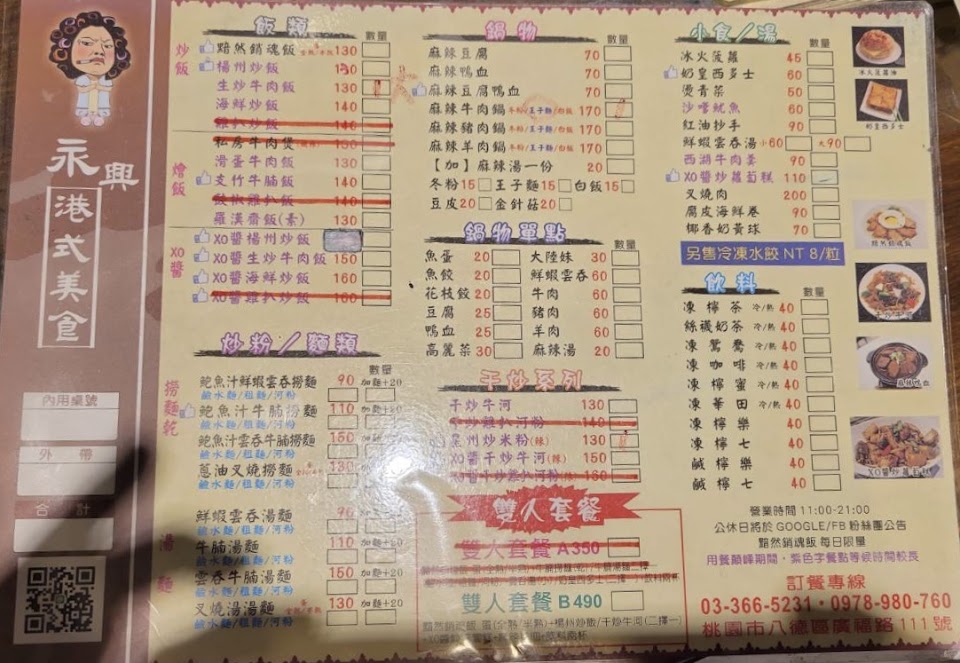 永興
港式美食
內用桌號
外帶
合計
飯類 數量
炒飯
黯然銷魂飯 130
楊州炒飯 130
生炒牛肉飯 130
海鮮炒飯 140
雞扒炒飯 140
燴飯
私房牛肉煲 130
滑蛋牛肉飯 130
支竹牛腩飯 140
豉椒雞扒飯 140
羅漢齋飯(素) 130
XO醬
XO醬楊州炒飯
XO醬生炒牛肉飯 150
XO醬海鮮炒飯 160
XO醬雞扒炒飯 160
炒粉/麵類
數量
撈麵乾
鮑魚汁鮮蝦雲吞撈麵 90 加麵+20
鹼水麵/粗麵/河粉
鮑魚汁牛腩撈麵 110 加麵+20
鹼水麵/粗麵/河粉
鮑魚汁雲吞牛腩撈麵 150 加麵+20
鹼水麵/粗麵/河粉
蔥油叉燒撈麵 130 加麵+20
鹼水麵/粗麵/河粉
湯麵
鮮蝦雲吞湯麵 90 加麵+20
鹼水麵/粗麵/河粉
牛腩湯麵 110 加麵+20
鹼水麵/粗麵/河粉
雲吞牛腩湯麵 150 加麵+20
鹼水麵/粗麵/河粉
叉燒湯湯麵 130 加麵+20
鹼水麵/粗麵/河粉
鍋物 數量
麻辣豆腐 70
麻辣鴨血 70
麻辣豆腐鴨血 70
麻辣牛肉鍋 冬粉/王子麵/白飯 170
麻辣豬肉鍋 冬粉/王子麵/白飯 170
麻辣羊肉鍋 冬粉/王子麵/白飯 170
【加】麻辣湯一份 20
冬粉15 王子麵15 白飯15
豆皮20 金針菇20
鍋物單點 數量
魚蛋 20 大陸妹 30
魚餃 20 鮮蝦雲吞 60
花枝餃 20 牛肉 60
豆腐 25 豬肉 60
鴨血 25 羊肉 60
高麗菜 30 麻辣湯 20
干炒系列 數量
干炒牛河 130
干炒雞扒河粉 140
星州炒米粉(辣) 130
XO醬干炒牛河(辣) 150
XO醬干炒雞扒河粉(辣) 160
雙人套餐
雙人套餐 A350
雙人套餐 B490
黯然銷魂飯 蛋(全熟/半熟)+楊州炒飯/干炒牛河(二擇一)
小食/湯 數量
冰火菠蘿 45
奶皇西多士 60
燙青菜 50
沙嗲魷魚 60
紅油抄手 90
鮮蝦雲吞湯 小60 大90
西湖牛肉羹 90
XO醬炒蘿蔔糕 110
叉燒肉 200
腐皮海鮮卷 90
椰香奶黃球 70
另售冷凍水餃 NT 8/粒
飲料 數量
凍檸茶 冷/熱 40
絲襪奶茶 冷/熱 40
凍鴛鴦 冷/熱 40
凍咖啡 冷/熱 40
凍檸蜜 冷/熱 40
凍華田 冷/熱 40
凍檸樂 40
凍檸七 40
鹹檸樂 40
鹹檸七 40
冰火菠蘿油
奶皇西多士
黯然銷魂飯
干炒牛河
麻辣鴨血
XO醬炒蘿蔔糕
營業時間 11:00-21:00
公休日將於 GOOGLE/FB 粉絲團公告
黯然銷魂飯 每日限量
用餐顛峰期間,紫色字餐點等候時間較長
訂餐專線
03-366-5231・0978-980-760
桃園市八德區廣福路 111號